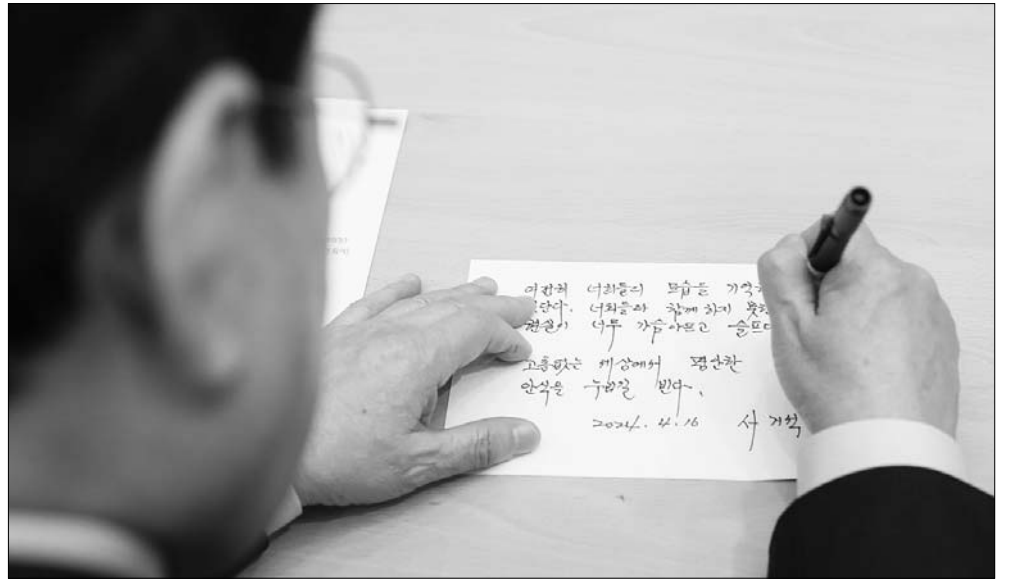 여전히 너희들의 모습을 기억하
있단다. 너희들과 함께 하지 못한
현실이 너무 가슴아프고 슬프다
고통없는 세상에서 편안한
안식을 누리길 빈다.
2024. 4. 16 서거석